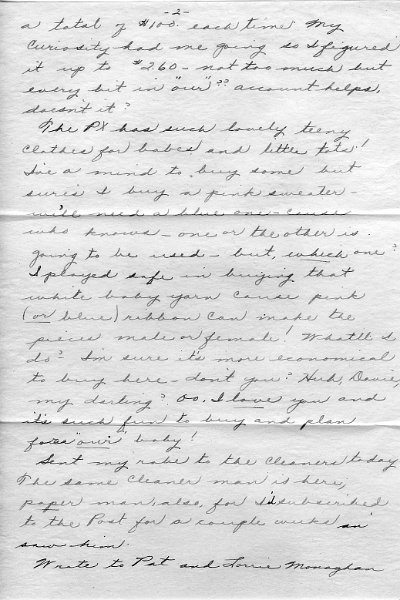 -2-
a total of $100. each time. My
curiosity had me going so I figured
it up to $260 - not too much but
every bit in "our"?? account helps,
doesn't it?
The PX has such lovely teeny
clothes for babes and little tots!
I've a mind to buy some but
sure's I buy a pink sweater -
we'll need a blue one - cause
who knows - one or the other is
going to be used - but, which one?
I played safe in buying that
white baby yarn cause pink
(or blue) ribbon can make the
pieces male or female! What'll I
do? I'm sure it's more economical
to buy here - don't you? Huh, Davie,
my darling? Oo. I love you and
it's such fun to buy and plan
for "our" baby!
Sent my robe to the cleaners today
The same cleaner man is here,
paper man, also, for I'd subscribed
to the Post for a couple weeks an'
saw him.
Wrote to Pat and Lorrie Monaghan